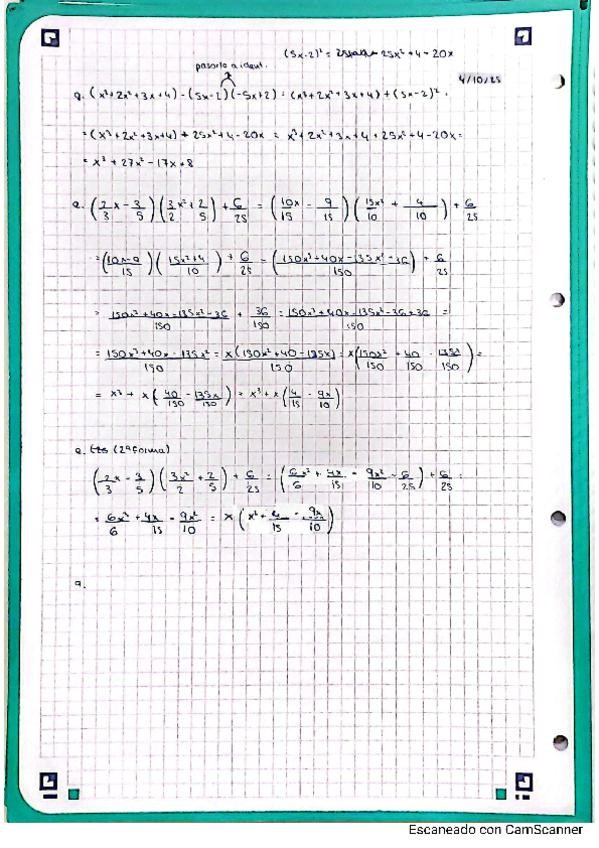 (5x-2)² = 25x²+4-20x
pasarlo a ident.
4/10/25
(x³+2x²+3x+4) - (5x-2)(-5x+2) = (x³+2x²+3x+4) + (5x-2)² =
= (x³+2x²+3x+4) + 25x²+4-20x = x³+2x²+3x+4+25x²+4-20x =
= x³+27x²-17x+8
a. (2/3 x - 3/5)(3x²/2 + 2/5) + 6/25 = (10x/15 - 9/15)(15x²/10 + 4/10) + 6/25
= (10x-9/15)(15x²+4/10) + 6/25 = (150x³+40x-135x²-36/150) + 6/25
= 150x³+40x-135x²-36/150 + 36/150 = 150x³+40x-135x²-36+36/150 =
= 150x³+40x-135x²/150 = x(150x²+40-135x)/150 = x(150x²/150 + 40/150 - 135x/150) =
= x³ + x(40/150 - 135x/150) = x³ + x(4/15 - 9x/10)
a. (2ª forma)
(2x/3 - 3/5)(3x²/2 + 2/5) + 6/25 = (6x³/6 + 4x/15 - 9x²/10 - 6/25) + 6/25 =
= 6x³/6 + 4x/15 - 9x²/10 = x(x² + 4/15 - 9x/10)